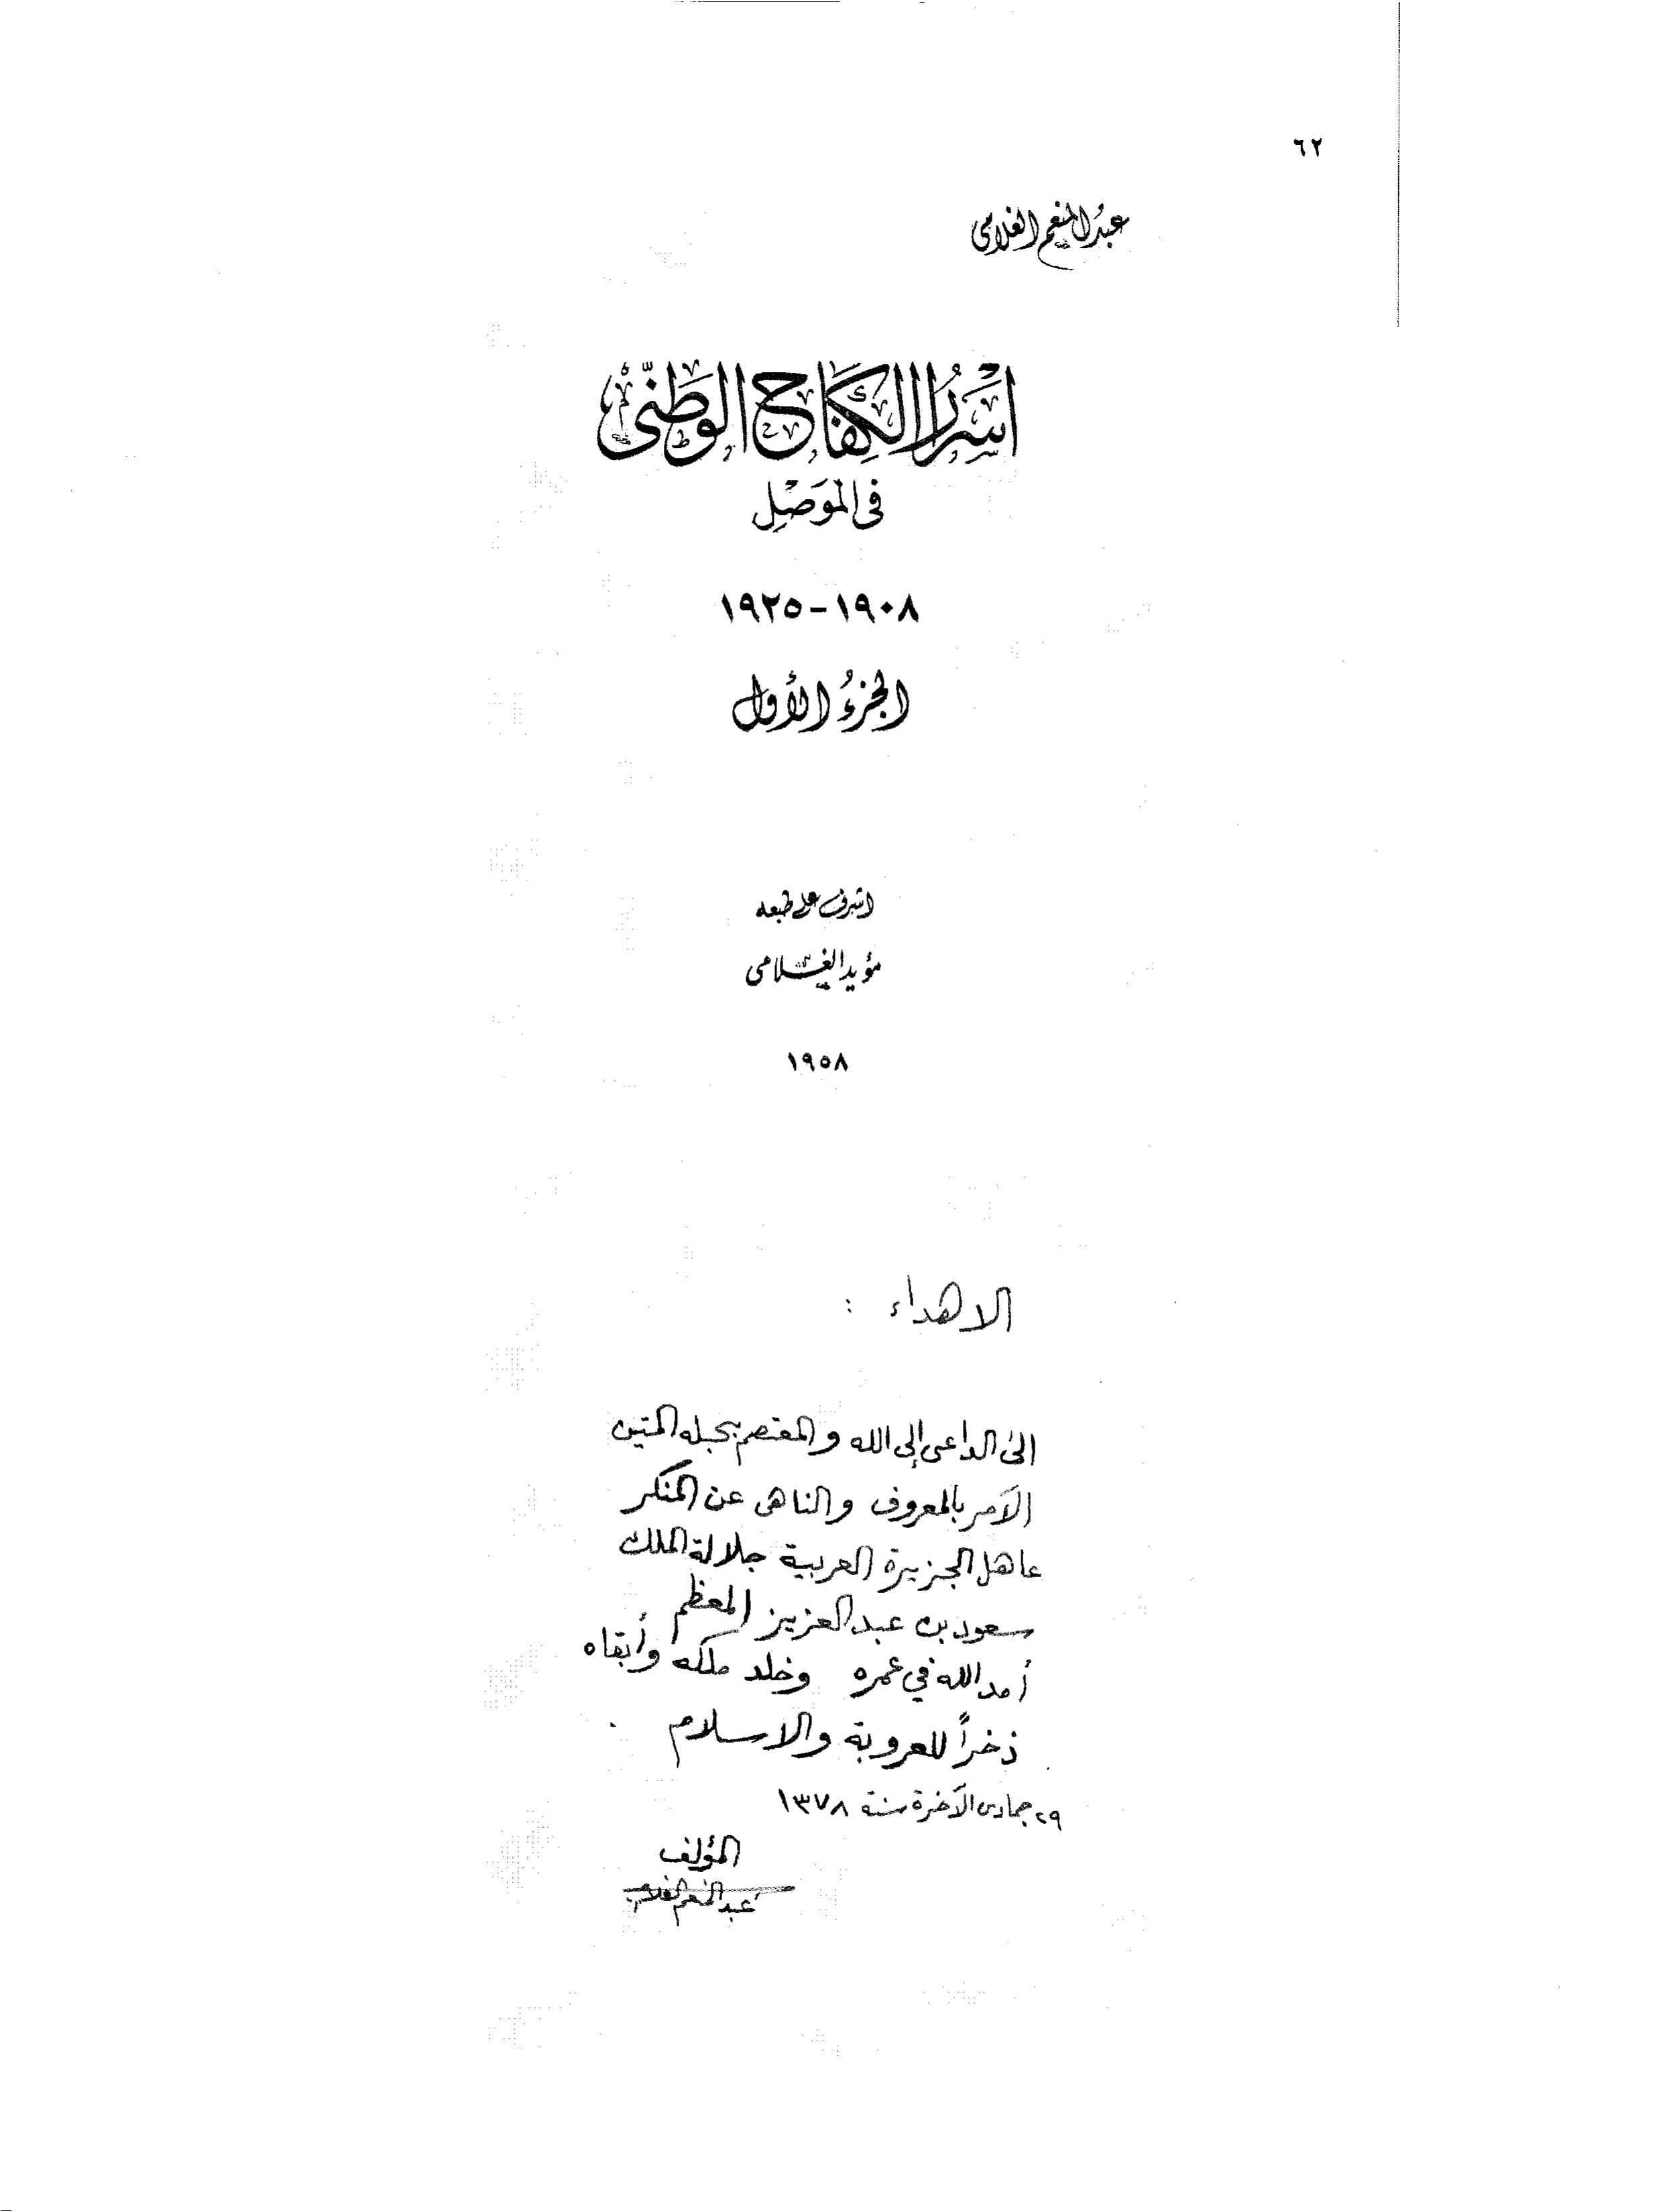 ٦٢
عبد المنعم الغلامي
أسرار الكفاح الوطني
في الموصل
١٩٠٨-١٩٢٥
الجزء الأول
اشرف على طبعه
مؤيد الغلامي
١٩٥٨
الاهداء :
الى الداعي إلى الله والمعتصم بحبله المتين
الآمر بالمعروف والناهي عن المنكر
عاهل الجزيرة العربية جلالة الملك
سعود بن عبد العزيز المعظم
أمد الله في عمره وخلد ملكه وأبقاه
ذخراً للعروبة والاسلام .
٢٩ جمادى الآخرة سنة ١٣٧٨
المؤلف
عبد المنعم الغلامي